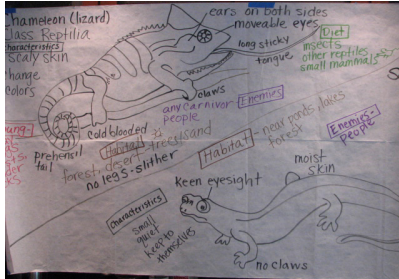 chameleon (lizard)
class Reptilia
characteristics
scaly skin
change
colors
ears on both sides
moveable eyes
long sticky
tongue
Diet
insects
other reptiles
small mammals
claws
any carnivor
people
Enemies
cold blooded
prehensil
tail
Habitat
forest, desert, trees, sand
no legs - slither
Habitat - near ponds, lakes
forest
Enemies-
people
moist
skin
Keen eyesight
characteristics
small
quiet
keep to
themselves
no claws